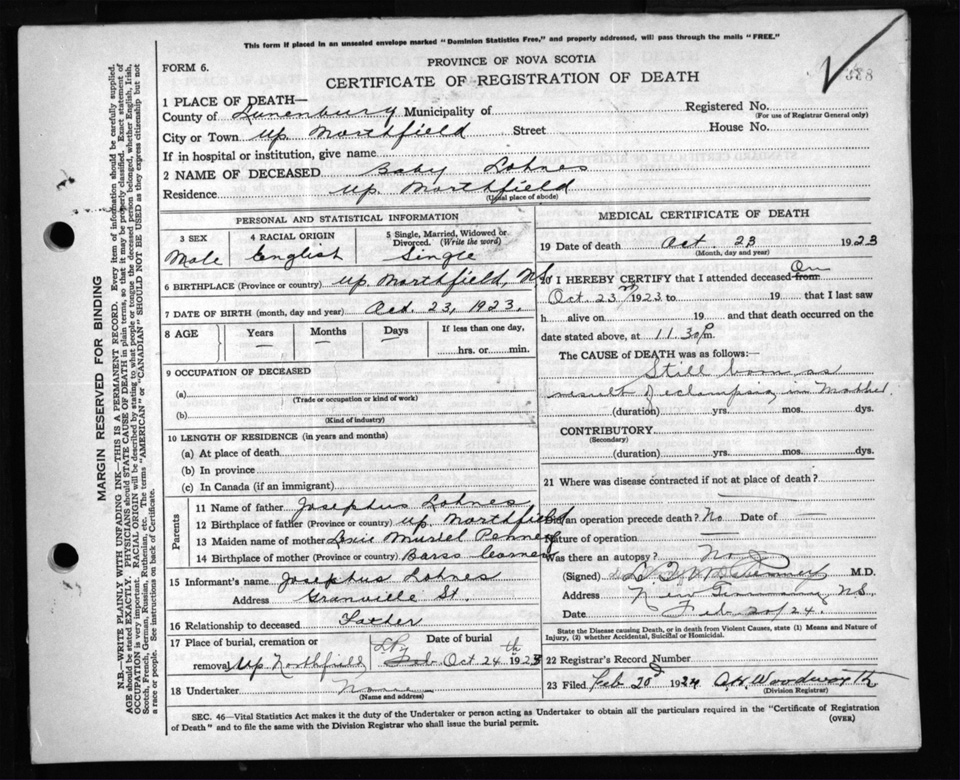 This form if placed in an unsealed envelope marked "Dominion Statistics Free," and properly addressed, will pass through the mails "FREE."
FORM 6.
PROVINCE OF NOVA SCOTIA
CERTIFICATE OF REGISTRATION OF DEATH
338
1 PLACE OF DEATH—
County of Lunenburg Municipality of
Registered No.
(For use of Registrar General only)
City or Town Up. Northfield Street House No.
If in hospital or institution, give name
2 NAME OF DECEASED Baby Lohnes
Residence Up. Northfield
(Usual place of abode)
PERSONAL AND STATISTICAL INFORMATION
3 SEX 4 RACIAL ORIGIN 5 Single, Married, Widowed or Divorced. (Write the word)
Male English Single
6 BIRTHPLACE (Province or country) Up. Northfield, NS
7 DATE OF BIRTH (month, day and year) Oct. 23, 1923.
8 AGE Years Months Days If less than one day,
— — — hrs. or min.
9 OCCUPATION OF DECEASED
(a)
(Trade or occupation or kind of work)
(b)
(Kind of industry)
10 LENGTH OF RESIDENCE (in years and months)
(a) At place of death
(b) In province
(c) In Canada (if an immigrant)
Parents
11 Name of father Josephus Lohnes
12 Birthplace of father (Province or country) Up. Northfield
13 Maiden name of mother Muriel
14 Birthplace of mother (Province or country) Barss Corner
15 Informant's name Josephus Lohnes
Address Granville St.
16 Relationship to deceased Father
17 Place of burial, cremation or Date of burial
removal Up. Northfield Oct. 24th 1923
18 Undertaker None
(Name and address)
MEDICAL CERTIFICATE OF DEATH
19 Date of death Oct. 23 1923
(Month, day and year)
20 I HEREBY CERTIFY that I attended deceased from On
Oct. 23rd 1923 to 19 that I last saw
h alive on 19 and that death occurred on the
date stated above, at 11.30 Pm.
The CAUSE OF DEATH was as follows:—
Still born as
result of eclampsia in Mother.
(duration) yrs. mos. dys.
CONTRIBUTORY
(Secondary)
(duration) yrs. mos. dys.
21 Where was disease contracted if not at place of death?
Did an operation precede death? No Date of —
Nature of operation —
Was there an autopsy? No
(Signed) M.D.
Address New Germany NS.
Date Feb 20/24.
State the Disease causing Death, or in death from Violent Causes, state (1) Means and Nature of
Injury, (2) whether Accidental, Suicidal or Homicidal.
22 Registrar's Record Number
23 Filed Feb 20 1924 Woodworth
(Division Registrar)
SEC. 46—Vital Statistics Act makes it the duty of the Undertaker or person acting as Undertaker to obtain all the particulars required in the "Certificate of Registration
of Death" and to file the same with the Division Registrar who shall issue the burial permit.
(OVER)
MARGIN RESERVED FOR BINDING
N.B.—WRITE PLAINLY WITH UNFADING INK—THIS IS A PERMANENT RECORD. Every item of information should be carefully supplied.
AGE should be stated EXACTLY. PHYSICIANS should STATE CAUSE OF DEATH in plain terms, so that it may be properly classified. Exact statement of
OCCUPATION is very important. RACIAL ORIGIN will be described by stating to what people or tongue the deceased person belonged, whether English, Irish,
Scotch, French, German, Russian, Ruthenian, etc. The terms "AMERICAN" or "CANADIAN" SHOULD NOT BE USED as they express citizenship but not
a race or people. See instructions on back of Certificate.